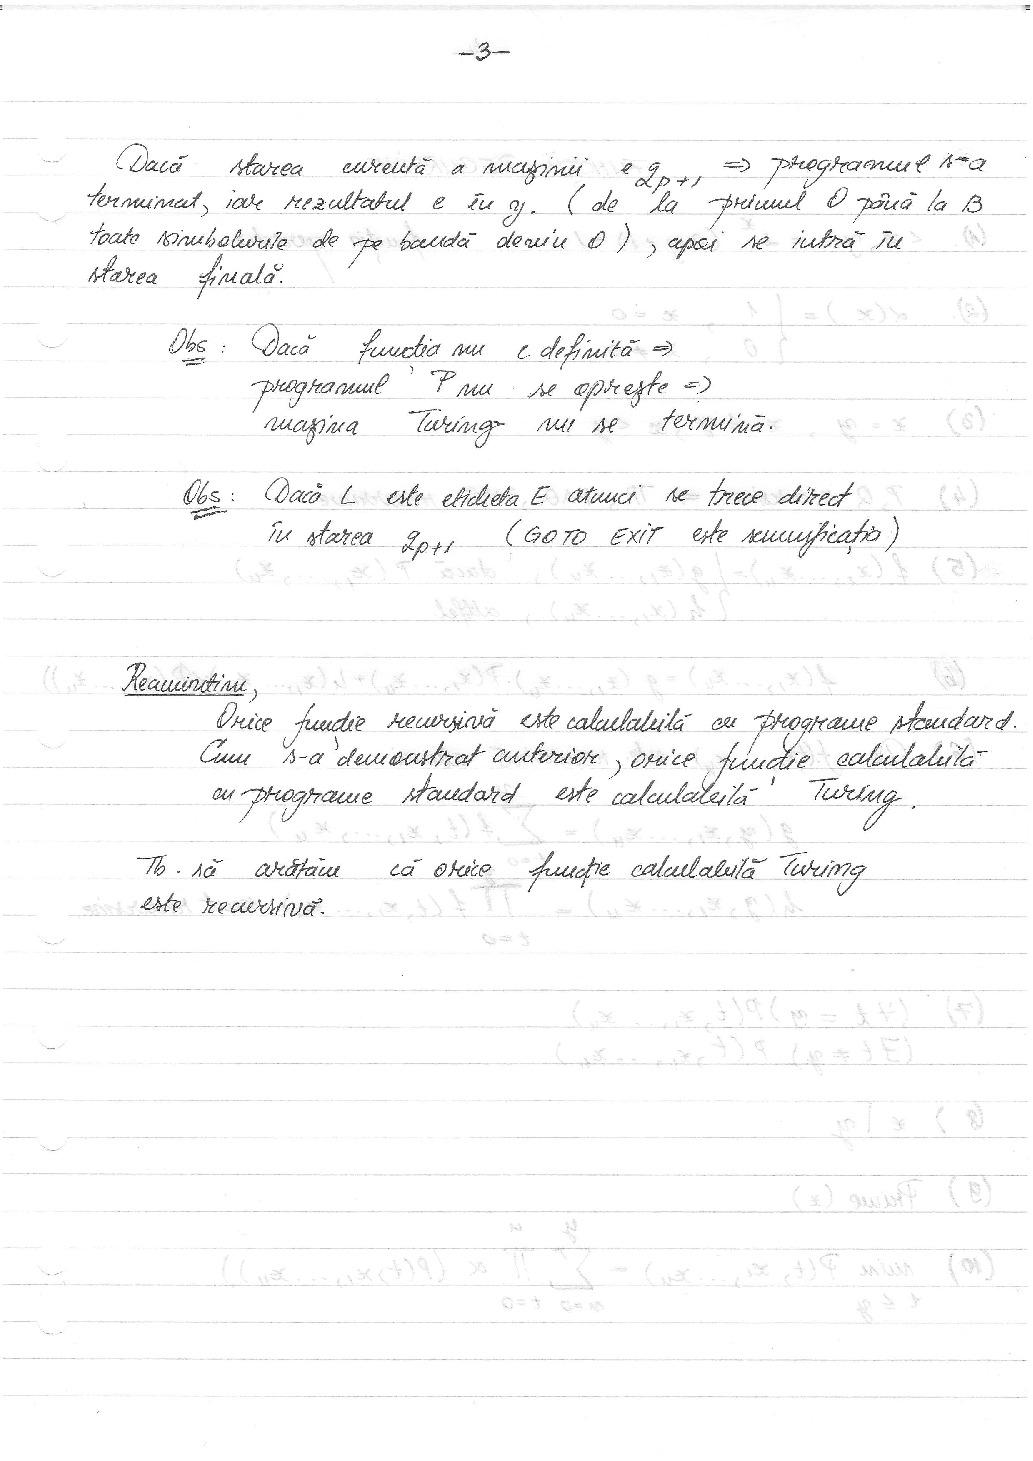 -3-
Dacă starea curentă a mașinii e q_{p+1} => programul s-a
terminat, iar rezultatul e în y. (de la primul 0 până la B
toate simbolurile de pe bandă devin 0), apoi se intră în
starea finală.
Obs: Dacă funcția nu e definită =>
programul P nu se oprește =>
mașina Turing nu se termină.
Obs: Dacă L este eticheta E atunci se trece direct
în starea q_{p+1} (GOTO EXIT este semnificația)
Reamintim,
Orice funcție recursivă este calculabilă cu programe standard.
Cum s-a demonstrat anterior, orice funcție calculabilă
cu programe standard este calculabilă Turing.
Tb. să arătăm că orice funcție calculabilă Turing
este recursivă.